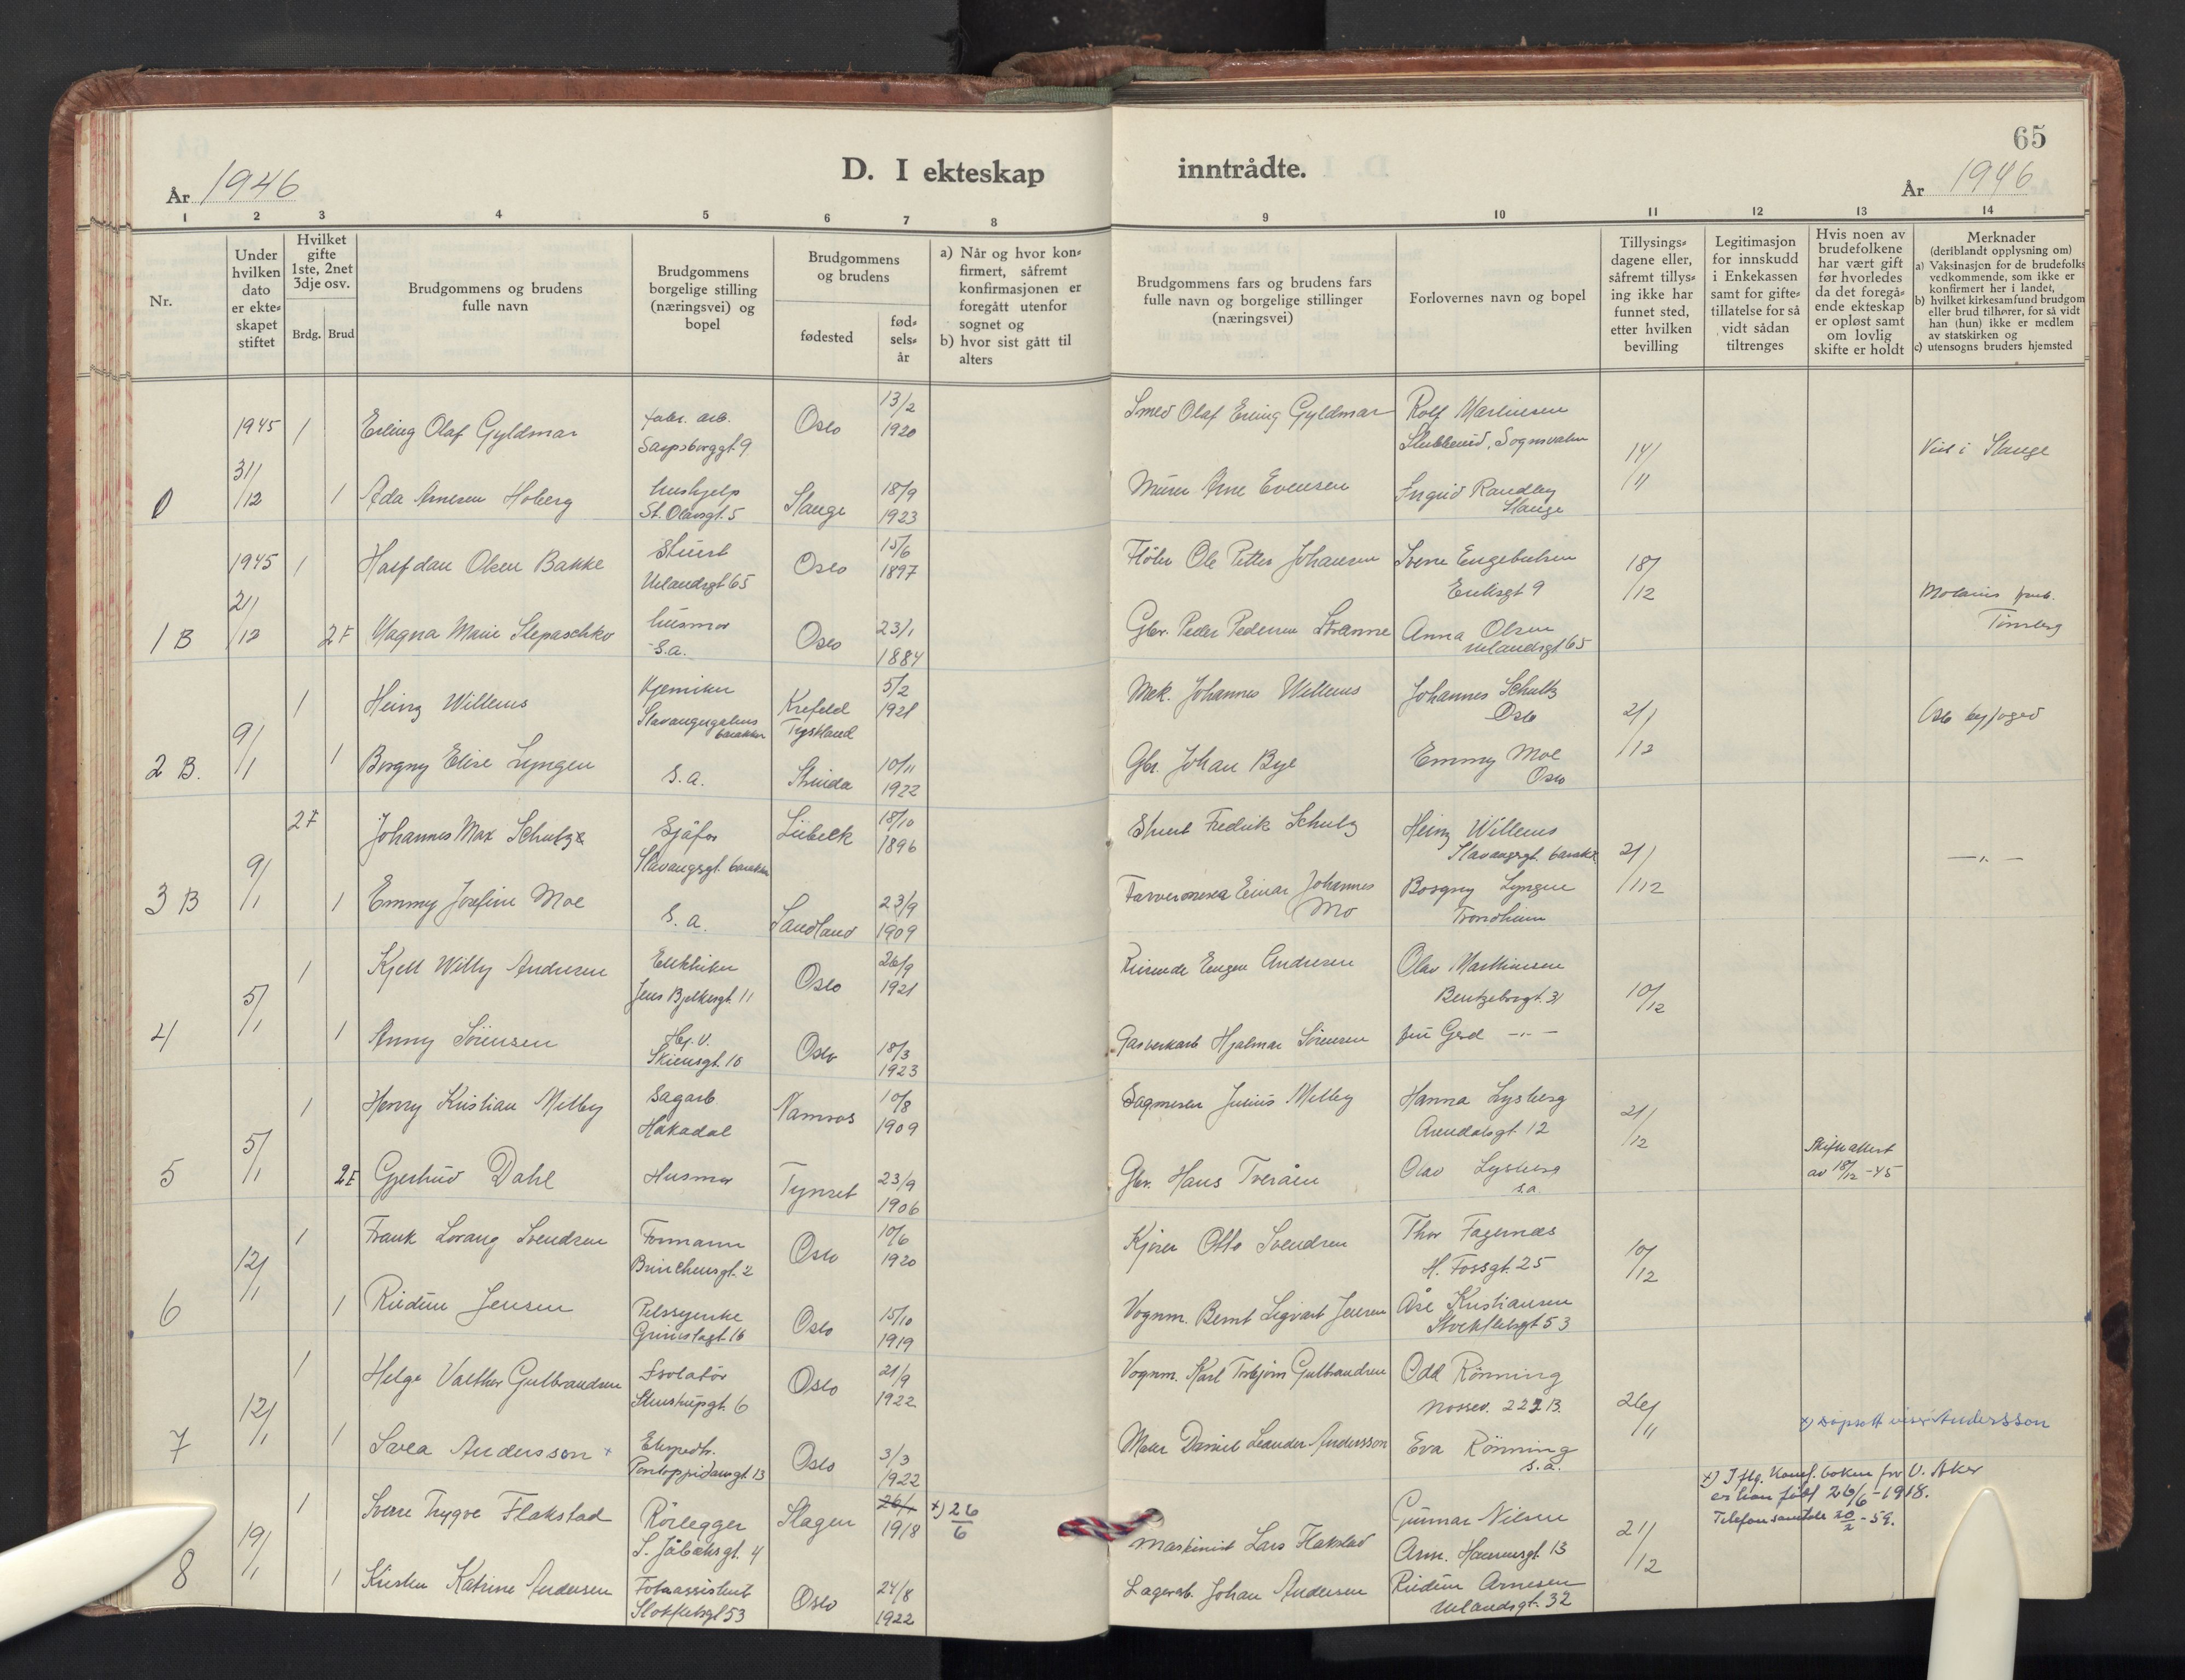 65
D. I ekteskap inntrådte.
År 1946
År 1946
1 2 3 4 5 6 7 8 9 10 11 12 13 14
Nr.
Under hvilken dato er ekteskapet stiftet
Hvilket gifte 1ste, 2net 3dje osv.
Brdg. Brud
Brudgommens og brudens fulle navn
Brudgommens borgelige stilling (næringsvei) og bopel
Brudgommens og brudens
fødested
fødselsår
a) Når og hvor konfirmert, såfremt konfirmasjonen er foregått utenfor sognet og
b) hvor sist gått til alters
Brudgommens fars og brudens fars fulle navn og borgelige stillinger (næringsvei)
Forlovernes navn og bopel
Tillysingsdagene eller, såfremt tillysing ikke har funnet sted, etter hvilken bevilling
Legitimasjon for innskudd i Enkekassen samt for giftetillatelse for så vidt sådan tiltrenges
Hvis noen av brudefolkene har vært gift før hvorledes da det foregående ekteskap er opløst samt om lovlig skifte er holdt
Merknader
(deriblandt opplysning om)
a) Vaksinasjon for de brudefolks vedkommende, som ikke er konfirmert her i landet,
b) hvilket kirkesamfund brudgom eller brud tilhører, for så vidt han (hun) ikke er medlem av statskirken og
c) utensogns bruders hjemsted
1945 1 Erling Olaf Gyldmar fabr. arb. Oslo 13/2 1920 Smed Olaf Erling Gyldmar Rolf Martinsen
Sarpsborggt. 9 Sognsvatn
0 31/12 1 Ada Arnesen Hoberg hushjelp Stange 18/9 1923 Murer Arne Evensen Ingrid Randby 14/11 Viet i Stange
St. Olavsgt. 5 Stange
1945 1 Halfdan Olsen Bakke Stuert Oslo 15/6 1897 Fløter Ole Petter Johansen Sverre Engebretsen 18/12
Uelandsgt 65 Eriksgt 9
1 B 21/12 2 F Magna Marie Slepaschko husmor Oslo 23/1 1884 Gbr. Peder Pedersen Anna Olsen Tønsberg
S.a. Uelandsgt 65
1 Heinz Willems Kjemiker Krefeld 5/2 1921 Mek. Johannes Willems Johannes Schultz 21/12 Oslo byfoged
Stavangergatens barakker Tyskland Oslo
2 B. 9/1 1 Borgny Elise Lyngen S.a. Strinda 10/11 1922 Gbr. Johan Bye Emmy Moe
Oslo
2 F Johannes Max Schulz Sjåfør Lübeck 18/10 1896 Stuert Fredrik Schulz Heinz Willems 21/12 — " —
Stavangergt. barakker Stavangergt. barakk.
3 B 9/1 1 Emmy Josefine Moe S. a. Sandland 23/9 1909 Einar Johannes Mo Borgny Lyngen
Trondheim
1 Kjell Willy Andresen Elektriker Oslo 26/9 1921 Reisende Eugen Andresen Olav Martinsen 10/12
Jens Bjelkesgt. 11 Bentzebrogt. 31
4 5/1 1 Anny Sørensen Hj. v. Oslo 18/3 1923 Gasverkarb Hjalmar Sørensen fru Gerd — " —
Skiensgt. 10
1 Henry Kristian Melby Sagarb Namsos 10/8 1909 Sagmester Julius Melby Hanna Lysberg 21/12
Hakadal Arendalsgt. 12
5 5/1 2 F Gjertrud Dahl Husmor Tynset 23/9 1906 Gbr. Hans Tveråen Olav Lysberg Skifteattest av 18/12 - 45
s.a.
1 Frank Lorang Svendsen Formann Oslo 10/6 1920 Kjører Otto Svendsen Thor Fagernæs 10/12
Brinchensgt. 2 H. Fossgt. 25
6 12/1 1 Reidun Jensen Pelssyerske Oslo 15/10 1919 Vognm. Bernt Sigvart Jensen Åse Kristiansen
Grimstadgt. 16 Stockfletsgt 53
1 Helge Valther Gulbrandsen Isolatør Oslo 21/9 1922 Vognm. Karl Torbjørn Gulbrandsen Odd Rønning 26/11
Steenstrupgt. 6 Mossev. 222 B.
7 12/1 1 Svea Andersson + Ekspedtr. Oslo 3/3 1922 Maler Daniel Leander Andersson Eva Rønning x) dåpsatt viser Andersson
Pontoppidansgt. 13 s.a.
1 Sverre Trygve Flakstad Rørlegger Slagen 26/1 1918 +) 26/6 Maskinist Lars Flakstad Gunnar Nilsen 21/12
S. Jåbæksgt. 4 Arn. Haueresgt. 13
+) I flg. konf. boken for V. Aker
er han født 26/6 - 1918.
Telefonsamtale 20/2 - 59.
8 19/1 1 Kirsten Katrine Andersen Fotoassistent Oslo 24/8 1922 Lagerarb. Johan Andersen Reidun Arnesen
Stokfletsgt 53 Uelandsgt. 32